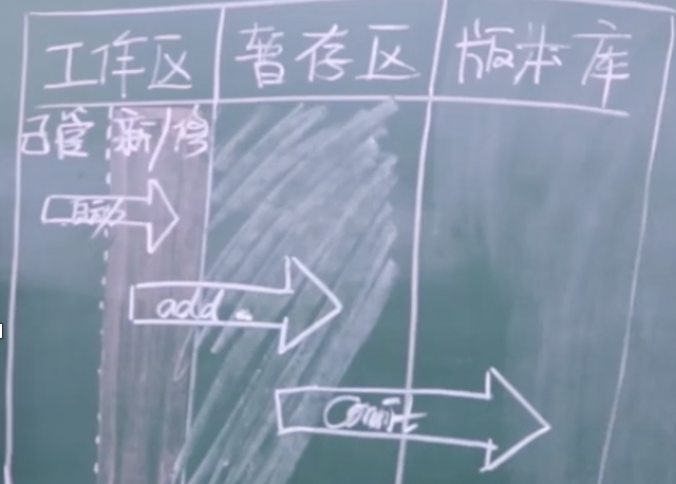 工作区 暂存区 版本库
已管 新/修
add .
Commit